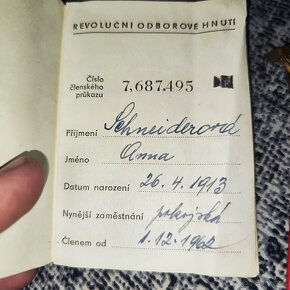 REVOLUČNÍ ODBOROVÉ HNUTÍ
Číslo
členského
průkazu
7,687.495
Příjmení Schneiderová
Jméno Anna
Datum narození 26.4.1913
Nynější zaměstnání pokojská
Členem od 1.12.1962